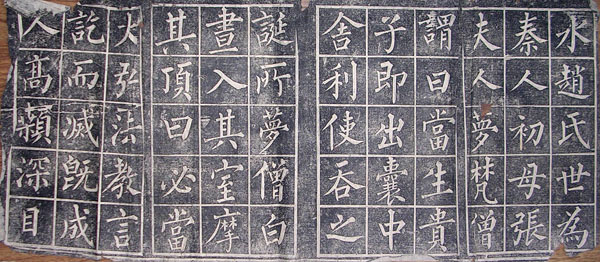 水趙氏世為
秦人初母張
夫人夢梵僧
謂曰當生貴
子即出囊中
舍利使吞之
誕所夢僧白
晝入其室摩
其頂曰必當
大弘法教言
訖而滅既成
人高顙深目